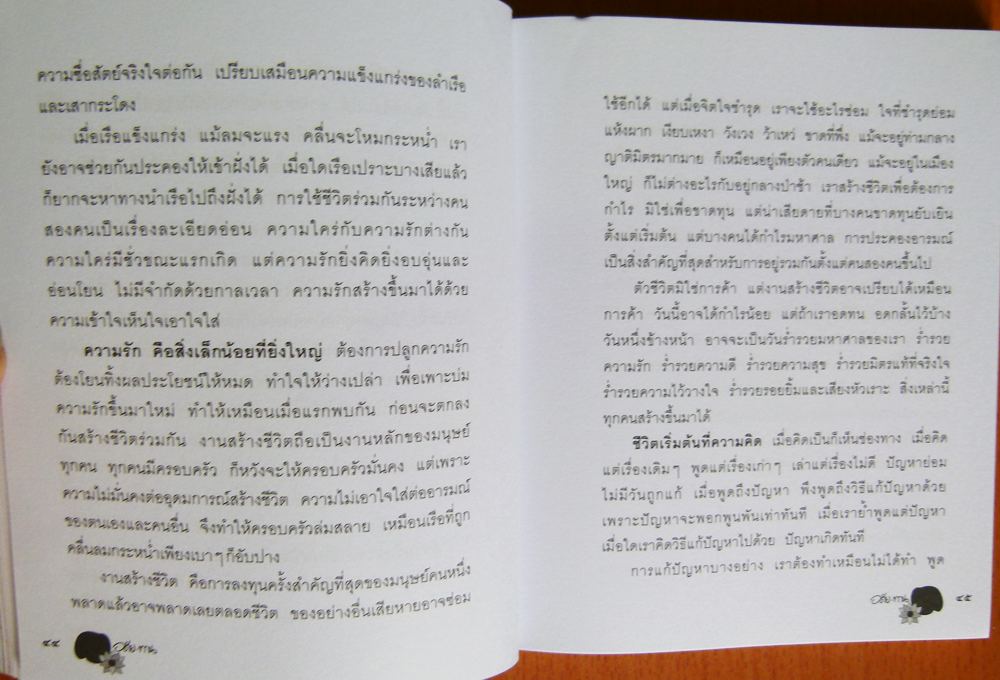 ความซื่อสัตย์จริงใจต่อกัน เปรียบเสมือนความแข็งแกร่งของลำเรือ
และเสากระโดง
เมื่อเรือแข็งแกร่ง แม้ลมจะแรง คลื่นจะโหมกระหน่ำ เรา
ยังอาจช่วยกันประคองให้เข้าฝั่งได้ เมื่อใดเรือเปราะบางเสียแล้ว
ก็ยากจะหาทางนำเรือไปถึงฝั่งได้ การใช้ชีวิตร่วมกันระหว่างคน
สองคนเป็นเรื่องละเอียดอ่อน ความใคร่กับความรักต่างกัน
ความใคร่มีชั่วขณะแรกเกิด แต่ความรักยิ่งคิดยิ่งอบอุ่นและ
อ่อนโยน ไม่มีจำกัดด้วยกาลเวลา ความรักสร้างขึ้นมาได้ด้วย
ความเข้าใจเห็นใจเอาใจใส่
ความรัก คือสิ่งเล็กน้อยที่ยิ่งใหญ่ ต้องการปลูกความรัก
ต้องโยนทิ้งผลประโยชน์ให้หมด ทำใจให้ว่างเปล่า เพื่อเพาะบ่ม
ความรักขึ้นมาใหม่ ทำให้เหมือนเมื่อแรกพบกัน ก่อนจะตกลง
กันสร้างชีวิตร่วมกัน งานสร้างชีวิตถือเป็นงานหลักของมนุษย์
ทุกคน ทุกคนมีครอบครัว ก็หวังจะให้ครอบครัวมั่นคง แต่เพราะ
ความไม่มั่นคงต่ออุดมการณ์สร้างชีวิต ความไม่เอาใจใส่ต่ออารมณ์
ของตนเองและคนอื่น จึงทำให้ครอบครัวล่มสลาย เหมือนเรือที่ถูก
คลื่นลมกระหน่ำเพียงเบาๆก็อับปาง
งานสร้างชีวิต คือการลงทุนครั้งสำคัญที่สุดของมนุษย์คนหนึ่ง
พลาดแล้วอาจพลาดเลยตลอดชีวิต ของอย่างอื่นเสียหายอาจซ่อม
๔๔
ใช้อีกได้ แต่เมื่อจิตใจชำรุด เราจะใช้อะไรซ่อม ใจที่ชำรุดย่อม
แห้งผาก เงียบเหงา วังเวง ว้าเหว่ ขาดที่พึ่ง แม้จะอยู่ท่ามกลาง
ญาติมิตรมากมาย ก็เหมือนอยู่เพียงตัวคนเดียว แม้จะอยู่ในเมือง
ใหญ่ ก็ไม่ต่างอะไรกับอยู่กลางป่าช้า เราสร้างชีวิตเพื่อต้องการ
กำไร มิใช่เพื่อขาดทุน แต่น่าเสียดายที่บางคนขาดทุนยับเยิน
ตั้งแต่เริ่มต้น แต่บางคนได้กำไรมหาศาล การประคองอารมณ์
เป็นสิ่งสำคัญที่สุดสำหรับการอยู่รวมกันตั้งแต่คนสองคนขึ้นไป
ตัวชีวิตมิใช่การค้า แต่งานสร้างชีวิตอาจเปรียบได้เหมือน
การค้า วันนี้อาจได้กำไรน้อย แต่ถ้าเราอดทน อดกลั้นไว้บ้าง
วันหนึ่งข้างหน้า อาจจะเป็นวันร่ำรวยมหาศาลของเรา ร่ำรวย
ความรัก ร่ำรวยความดี ร่ำรวยความสุข ร่ำรวยมิตรแท้ที่จริงใจ
ร่ำรวยความไว้วางใจ ร่ำรวยรอยยิ้มและเสียงหัวเราะ สิ่งเหล่านี้
ทุกคนสร้างขึ้นมาได้
ชีวิตเริ่มต้นที่ความคิด เมื่อคิดเป็นก็เห็นช่องทาง เมื่อคิด
แต่เรื่องเดิมๆ พูดแต่เรื่องเก่าๆ เล่าแต่เรื่องไม่ดี ปัญหาย่อม
ไม่มีวันถูกแก้ เมื่อพูดถึงปัญหา พึงพูดถึงวิธีแก้ปัญหาด้วย
เพราะปัญหาจะพอกพูนพันเท่าทันที เมื่อเราย้ำพูดแต่ปัญหา
เมื่อใดเราคิดวิธีแก้ปัญหาไปด้วย ปัญหาเกิดทันที
การแก้ปัญหาบางอย่าง เราต้องทำเหมือนไม่ได้ทำ พูด
๔๕